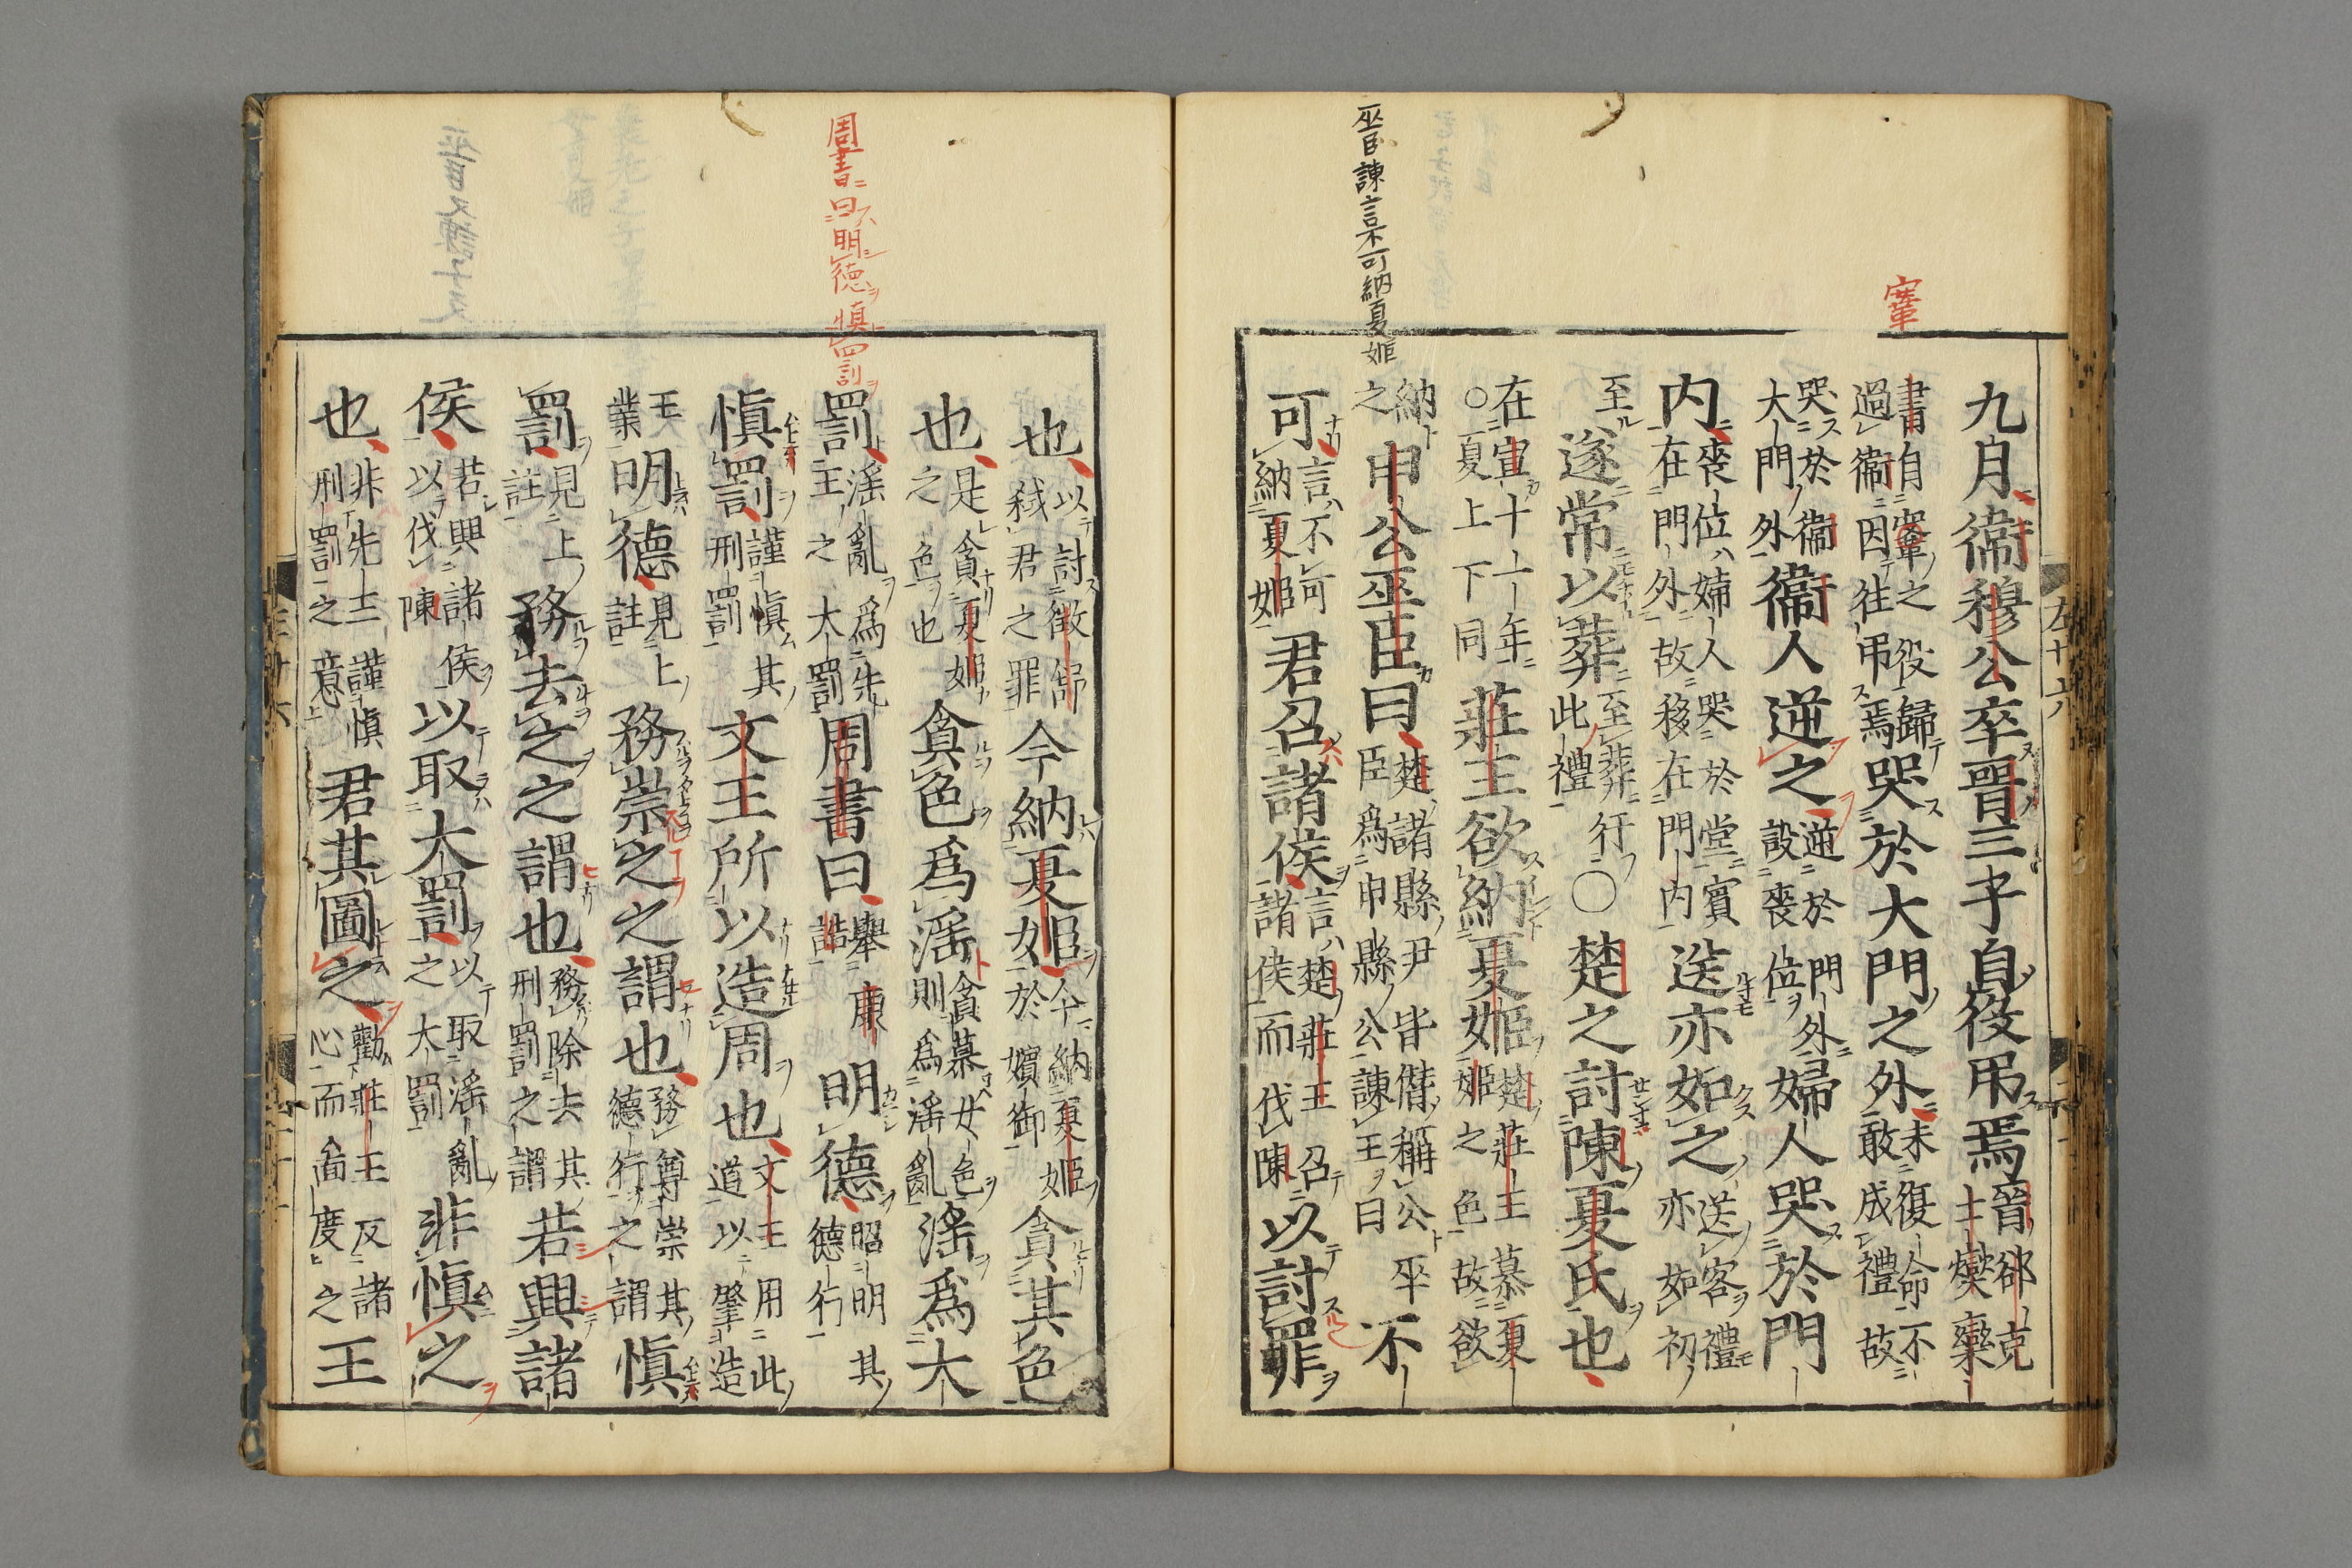 巫臣諫言不可納夏姬
鞌
九月衞穆公卒晉三子自役吊焉晉郤克士燮欒
書自鞌之役歸過衞因往吊焉哭於大門之外未復命不敢成禮故
哭於大門外衞人逆之逆於門外設喪位婦人哭於門
内喪位婦人哭於堂賓在門外故移在門内送亦如之送客禮亦如初
至遂常以葬至葬行此禮〇楚之討陳夏氏也
在宣十一年〇夏上下同莊王欲納夏姬楚莊王慕夏姬之色故欲
納之申公巫臣曰楚諸縣尹皆僭稱公巫臣爲申縣公諫王曰不
可言不可納夏姬君召諸侯言楚莊王召諸侯而伐陳以討罪
周書曰明德慎罰
也以討徵舒弑君之罪今納夏姬今納夏姬於嬪御貪其色
也是貪夏姬之色也貪色爲淫貪慕女色則爲淫亂淫爲大
罰淫亂爲先王之大罰周書曰舉康誥明德昭明其德行
愼罰謹愼其刑罰文王所以造周也文王用此道以肇造
王業明德見上註務崇之之謂也務尊崇其德行之謂愼
罰見上註務去之之謂也務除去其刑罰之謂若興諸
侯若興諸侯以伐陳以取大罰以取淫亂之大罰非愼之
也非先王謹愼刑罰之意君其圖之勸莊王反諸心而面度之王